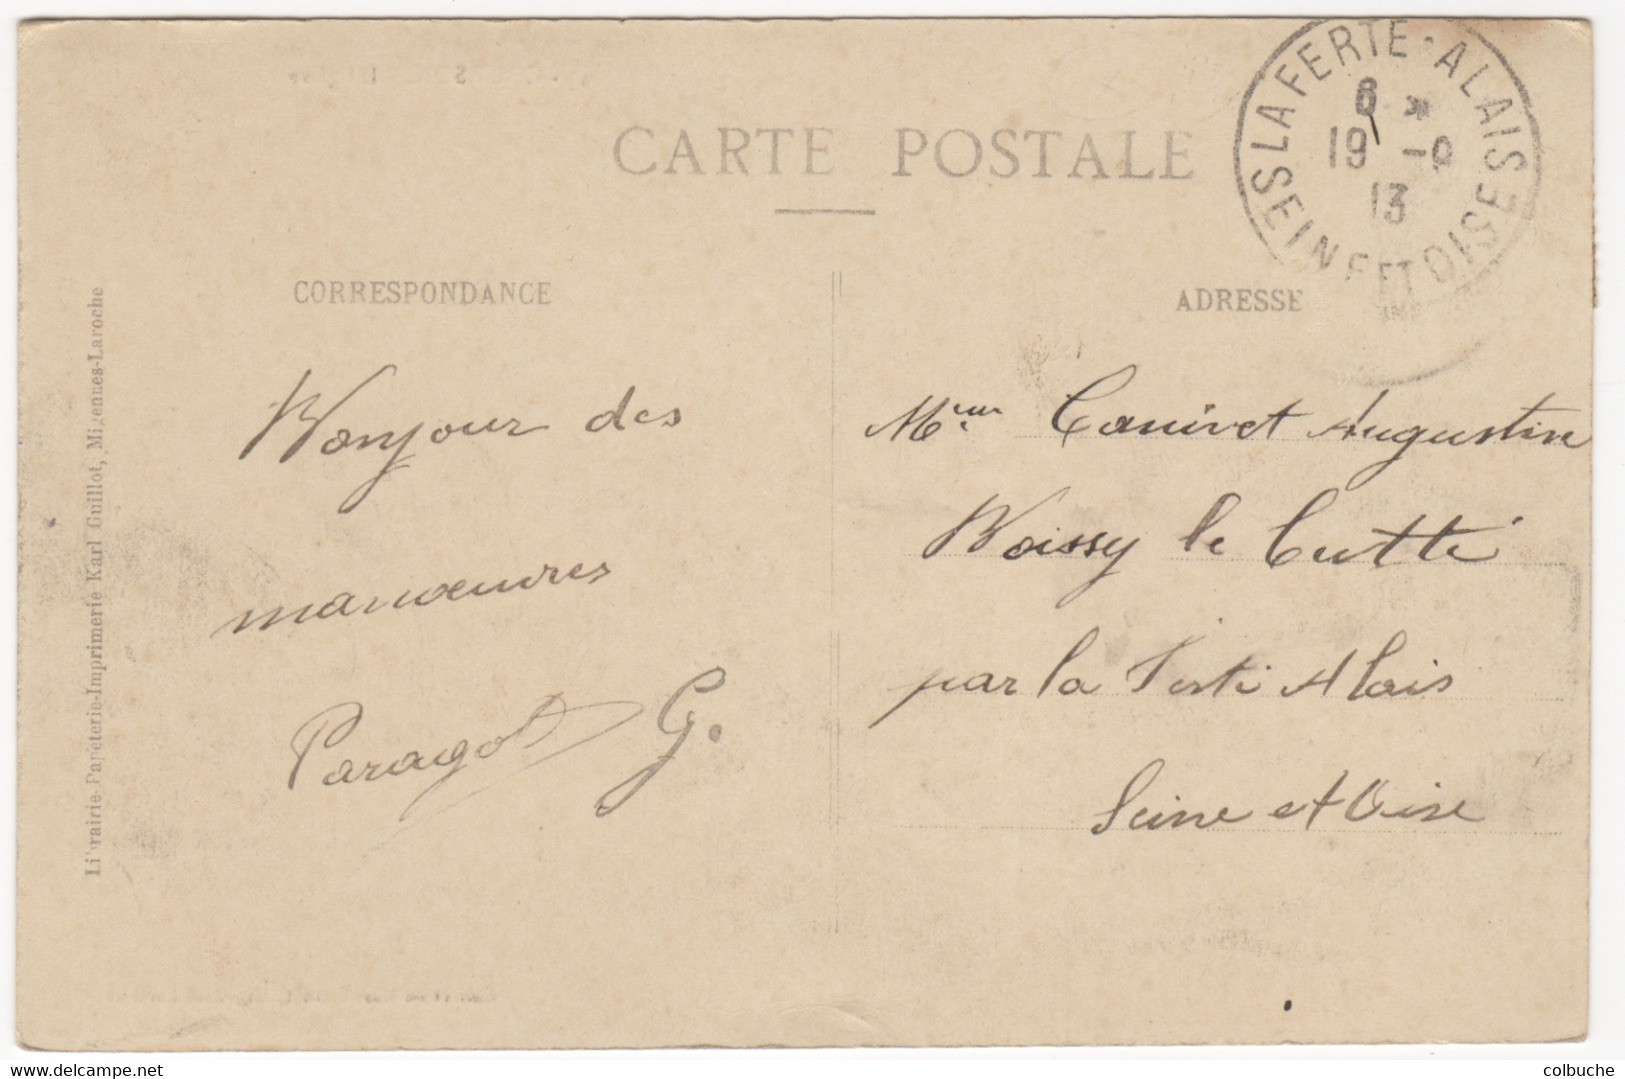 CARTE POSTALE
LA FERTE-ALAIS
6 *
19 -9
13
SEINE ET OISE
CORRESPONDANCE
ADRESSE
Bonjour des
manœuvres
Paragot G.
Mme Canivet Augustine
Boissy le Cutté
par la Ferté Alais
Seine et Oise
Librairie-Papeterie-Imprimerie Karl Guillot, Migennes-Laroche
colbuche